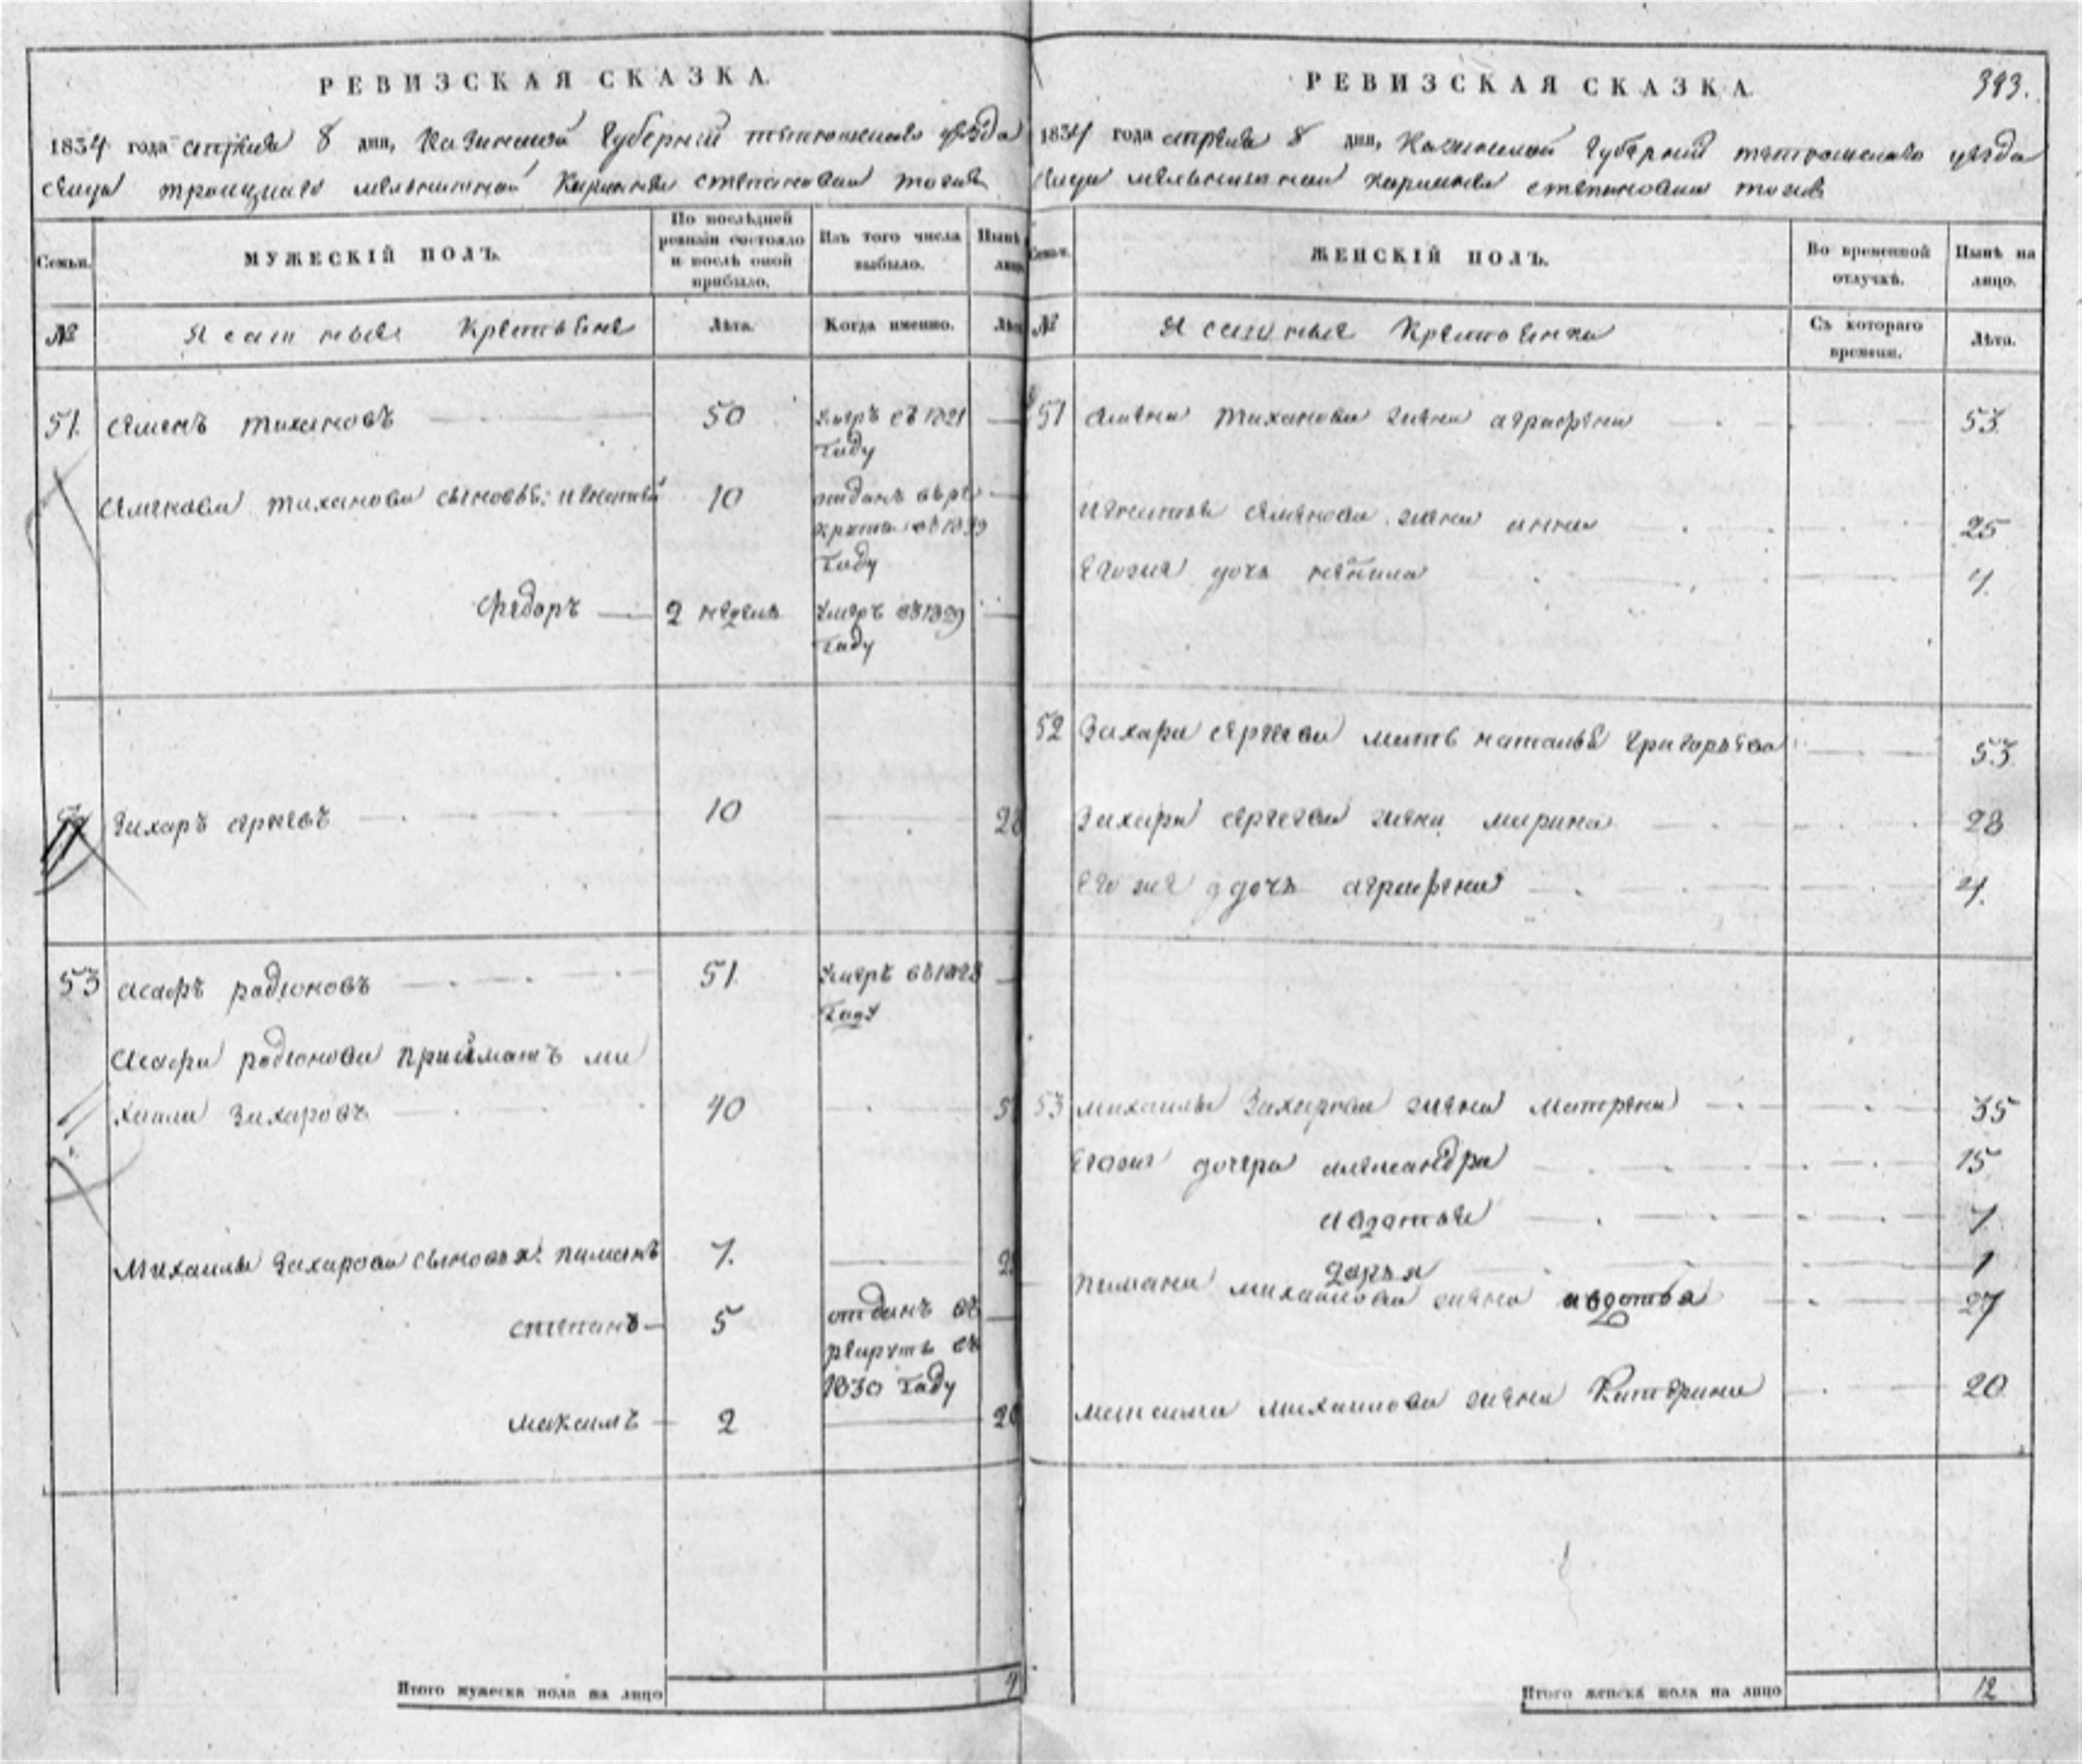 РЕВИЗСКАЯ СКАЗКА.
1834 года апреля 8 дня, Казанской Губернии тетюшскаго уезда
Селца троицкаго мельнишной Карамзи степановки тожъ
Семьи. МУЖЕСКІЙ ПОЛЪ. По послѣдней ревизіи состояло и послѣ оной прибыло. Изъ того числа выбыло. Нынѣ
№ Ясашныя Крестьяне Лѣта. Когда именно.
51. Семенъ тихановъ 50 Умеръ въ 1821
году
Семенова тиханова сыновья: игнатей 10 отданъ въ ре
круты въ 1829
году
федоръ 2 недели Умеръ въ 1829
году
Захаръ сергеевъ 10 28
53 асафъ радионовъ 51. Умеръ въ 1828
году
Асафа радионова приймать ми
хаила Захаровъ 40
Михаилы Захарова сыновья: пиманъ 7.
степанъ 5 отданъ въ
рекруты въ
1830 году
максимъ 2 20
Итого мужеска пола на лицо 4
РЕВИЗСКАЯ СКАЗКА 393.
1834 года апреля 8 дня, Казанской Губернии тетюшскаго уезда
Селца мельнишной карамзи степановки тожъ
Семьи. ЖЕНСКІЙ ПОЛЪ. Во временной отлучкѣ. Нынѣ на лицо.
№ Ясашныя Крестьянки Съ котораго времени. Лѣта.
51 Семена тиханова жена аграфена 53
игнатья семенова жена анна 25
Егожа дочь 4
52 Захара сергеева мать наталья григорьева 53
Захара сергеева жена марина 28
Егожа дочь аграфена 4.
53 михаилы Захарова жена матрена 35
Егожа дочери александра 15
авдотья 7
дарья 1
пимана михаилова жена авдотья 27
максима михаилова жена Катерина 20
Итого женска пола на лицо 12